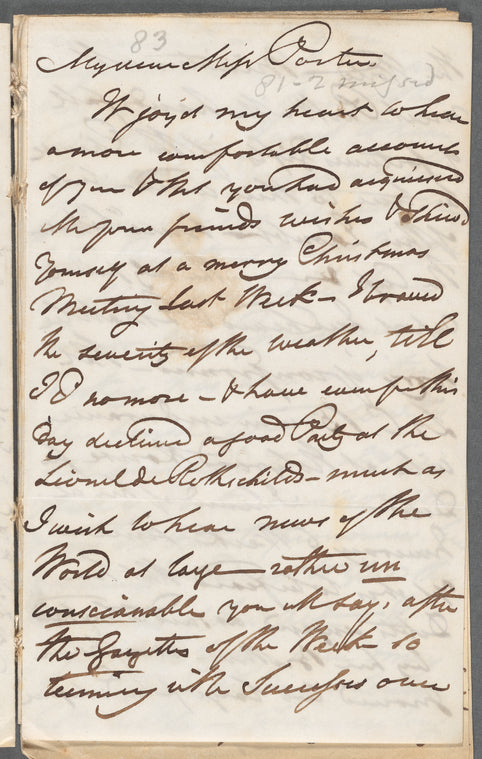 83
My dear Miss Porter
81-2 missed
It joy'd my heart to hear
a more comfortable account
of you & that you had acquiesced
in your friends wishes & shewd
yourself at a merry Christmas
Meeting last Week – I braved
the severity of the weather, till
I cd no more – & have compe this
day declined a good Party at the
Lionel de Rothschilds – much as
I wish to hear news of the
World at large – rather un
conscionable you will say, after
the Gazettes of the Week so
teeming with Successes over